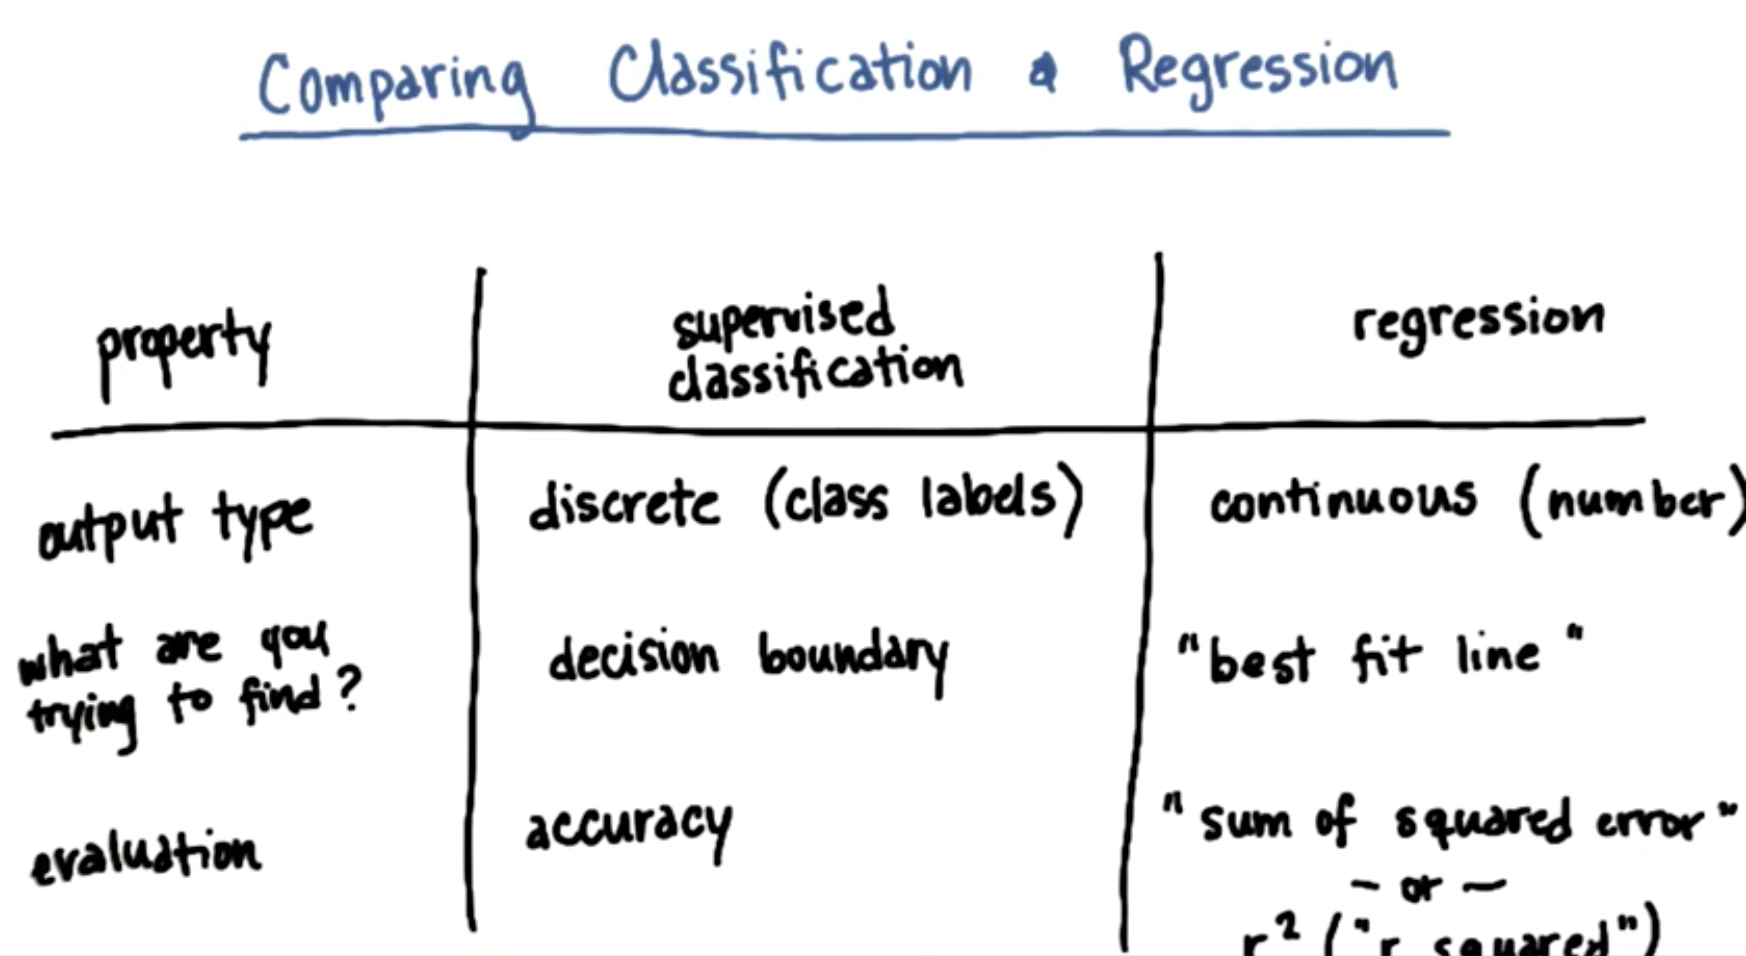 Comparing Classification & Regression
property
supervised
classification
regression
output type
discrete (class labels)
continuous (number)
what are you
trying to find?
decision boundary
"best fit line"
evaluation
accuracy
"sum of squared error"
- or -
r² ("r squared")